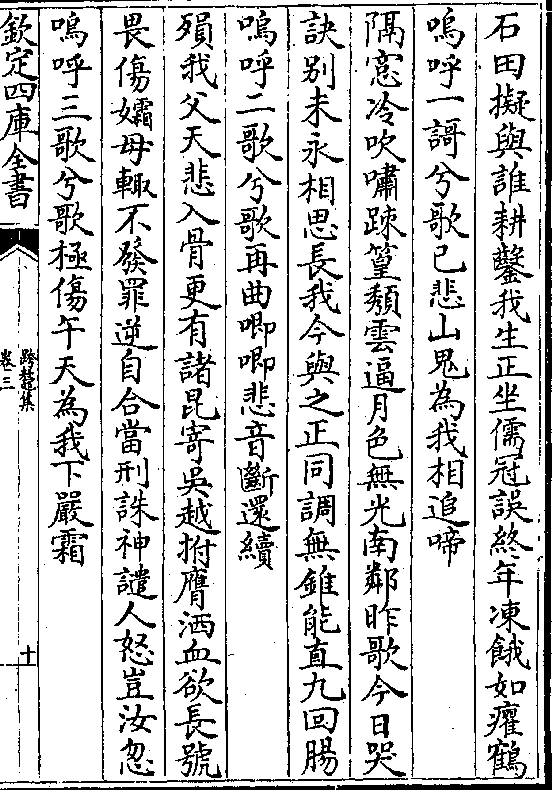 石田擬與誰耕鑿我生正坐儒冠誤終年凍餓如癯鶴
嗚呼一謌兮歌已悲山鬼為我相追啼
隔窻冷吹嘯踈篁頽雲逼月色無光南鄰昨歌今日哭
訣别未永相思長我今與之正同調無錐能直九回腸
嗚呼二歌兮歌再曲唧唧悲音斷還續
殞我父天悲入骨更有諸昆寄吳越拊膺洒血欲長號
畏傷孀母輙不發罪逆自合當刑誅神譴人怒豈汝忽
嗚呼三歌兮歌極傷午天為我下嚴霜
欽定四庫全書
卷三
十